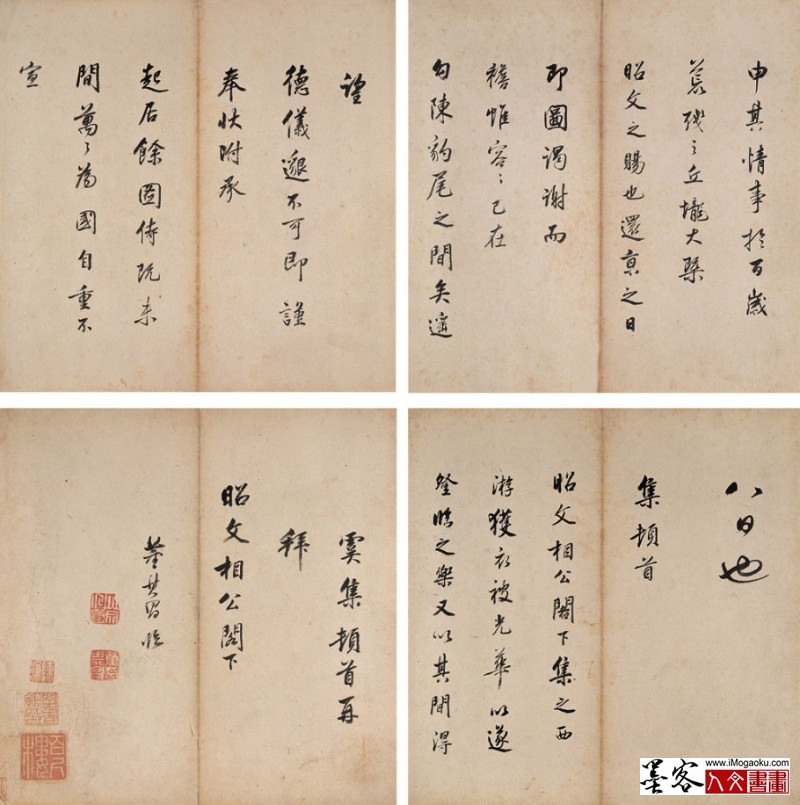 八日也
集頓首
昭文相公閣下集之西
游獲衣被光華以遂
登臨之樂又以其間得
申其情事於百歲
殘々丘壠大槩
昭文之賜也還京之日
即圖謁謝而
襜帷容々已在
勾陳豹尾之間矣遥
望
德儀邈不可即謹
奉狀附承
起居餘圖侍未
間萬々為國自重不
宣
虞集頓首再
拜
昭文相公閣下
董其昌臨
墨客
www.iMogaoku.com
人文書畫